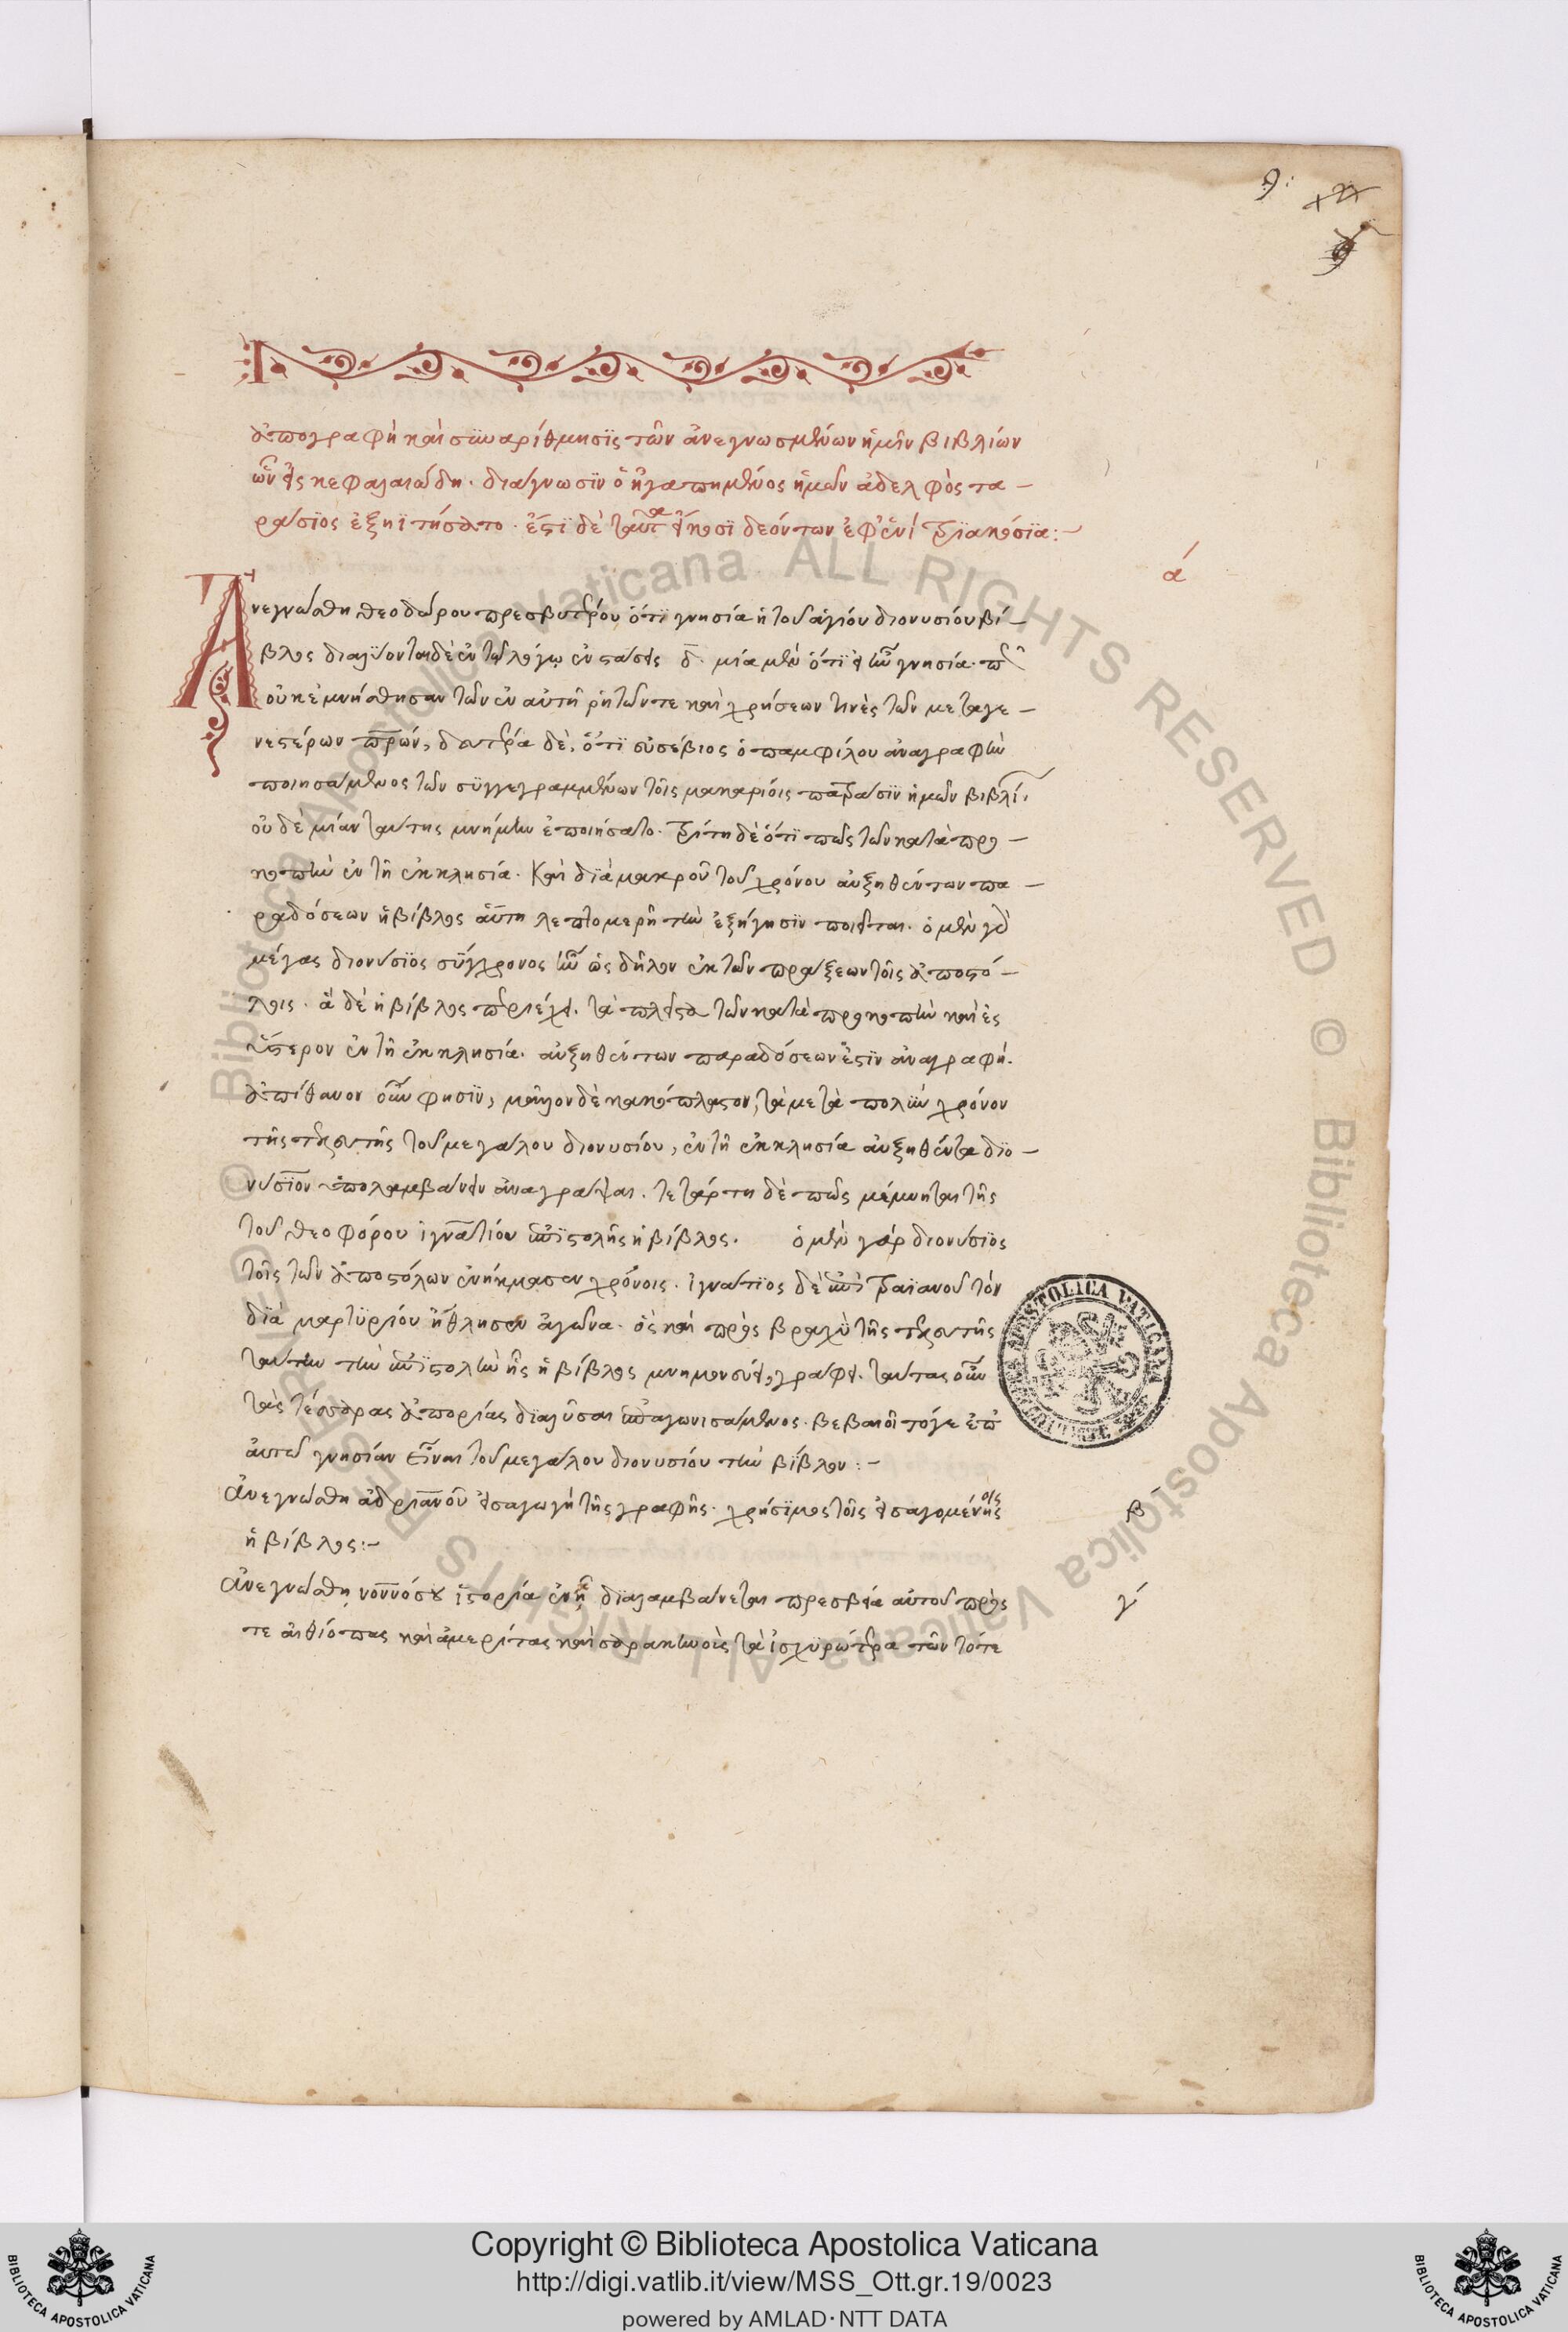 ἀπογραφὴ καὶ συναρίθμησϊς τῶν ἀνεγνωσμένων ἡμῖν βιβλίων
ὧν εἰς κεφαλαιώδη. διάγνωσϊν ὁ ἠγαπημένος ἡμῶν ἀδελφὸς τα–
ράσϊος ἐξηϊτήσατο. ἔστϊ δὲ ταῦτα εἴκοσϊ δεόντων ἐφ' ἑνὶ τρϊακόσϊα:–
ά
Ἀνεγνώσθη θεοδώρου πρεσβυτέρου ὅτϊ γνησία ἡ τοῦ ἁγίου διονυσίου βί–
βλος διαλύονται δὲ ἐν τῷ λόγῳ ἐνστάσεις δ. μία μὲν ὅτϊ εἰ ἦν γνησία. πῶς
οὐκ ἐμνήσθησαν τῶν ἐν αὐτῇ ῥητῶν τε καὶ χρήσεων τινὲς τῶν μεταγε–
νεστέρων πρων, δευτέρα δὲ, ὅτϊ εὐσέβιος ὁ παμφίλου ἀναγραφὴν
ποιησάμενος τῶν συγγεγραμμένων τοῖς μακαρίοις πατράσϊν ἡμῶν βιβλί
οὐδὲ μίαν ταύτης μνήμην ἐποιήσατο. τρίτη δὲ ὅτϊ πῶς τῶν κατὰ προ–
κοπὴν ἐν τῇ ἐκκλησία. καὶ διὰ μακροῦ τοῦ χρόνου αὐξηθέντων πα–
ραδόσεων ἡ βίβλος αὕτη λεπτομερῆ τὴν ἐξήγησϊν ποιεῖται. ὁ μὲν γὰρ
μέγας διονύσϊος σύγχρονος ἦν ὡς δῆλον ἐκ τῶν πράξεων τοῖς ἀποστό–
λοις. ἃ δὲ ἡ βίβλος περιέχει. τὰ πλεῖστα τῶν κατὰ προκοπὴν καὶ ἐς
ὕστερον ἐν τῇ ἐκκλησία. αὐξηθέντων παραδόσεων ἐστϊν ἀναγραφή.
ἀπίθανον οὖν φησϊν, μᾶλλον δὲ κακόπλαστον, τὰ μετὰ πολὺν χρόνον
τῆς τελευτῆς τοῦ μεγάλου διονυσίου, ἐν τῇ ἐκκλησία αὐξηθέντα διο–
νύσϊον ὑπολαμβάνειν ἀναγράψαι. τετάρτη δὲ πῶς μέμνηται τῆς
τοῦ θεοφόρου ἰγνατίου ἐπϊστολῆς ἡ βίβλος. ὁ μὲν γὰρ διονύσϊος
τοῖς τῶν ἀποστόλων ἐνήκμασεν χρόνοις. ἰγνάτϊος δὲ ἐπὶ τραϊανοῦ τὸν
διὰ μαρτυρίου ἤθλησεν ἀγῶνα. ὃς καὶ πρὸς βραχὺ τῆς τελευτῆς
ταύτην τὴν ἐπϊστολὴν ἧς ἡ βίβλος μνημονεύει, γράφει. ταύτας οὖν
τὰς τέσσαρας ἀπορίας διαλῦσαι ἐπαγωνισάμενος. βεβαιοῖ τόγε ἐπ'
αὐτῶ γνησίαν εἶναι τοῦ μεγάλου διονυσίου τὴν βίβλον:–
Ἀνεγνώσθη ἀδριανοῦ εἰσαγωγὴ τῆς γραφῆς. χρήσϊμος τοῖς εἰσαγομένοις
β
ἡ βίβλος:–
Ἀνεγνώσθη νοννόσου ἱστορία ἐν ᾗ διαλαμβάνεται πρεσβεία αὐτοῦ πρός
γ
τε αἰθίοπας καὶ ἀμερίτας καὶ σαρακηνοὺς τὰ ἰσχυρώτερα τῶν τότε
BIBLIOTECA APOSTOLICA VATICANA
© Biblioteca Apostolica Vaticana ALL RIGHTS RESERVED
Copyright © Biblioteca Apostolica Vaticana
http://digi.vatlib.it/view/MSS_Ott.gr.19/0023
powered by AMLAD·NTT DATA